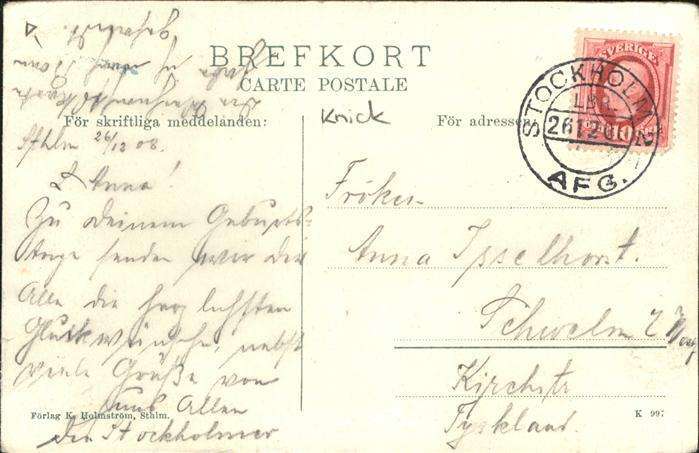 BREFKORT
CARTE POSTALE
För skriftliga meddelanden:
Knick
För adressen
SVERIGE
10
STOCKHOLM 2
LBR.
26 12 0
AFG.
Sthlm 26/12 08.
L. Anna!
Zu Deinem Geburts-
tage senden wir dir
Alle die herzlichsten
Glückwünsche, nebst
viele Grüße von
uns Allen
Die Stockholmer
Fröken
Anna Ysselhorst.
Schwelm
Kirchstr
Tyskland.
Förlag K. Holmström, Sthlm.
K 997